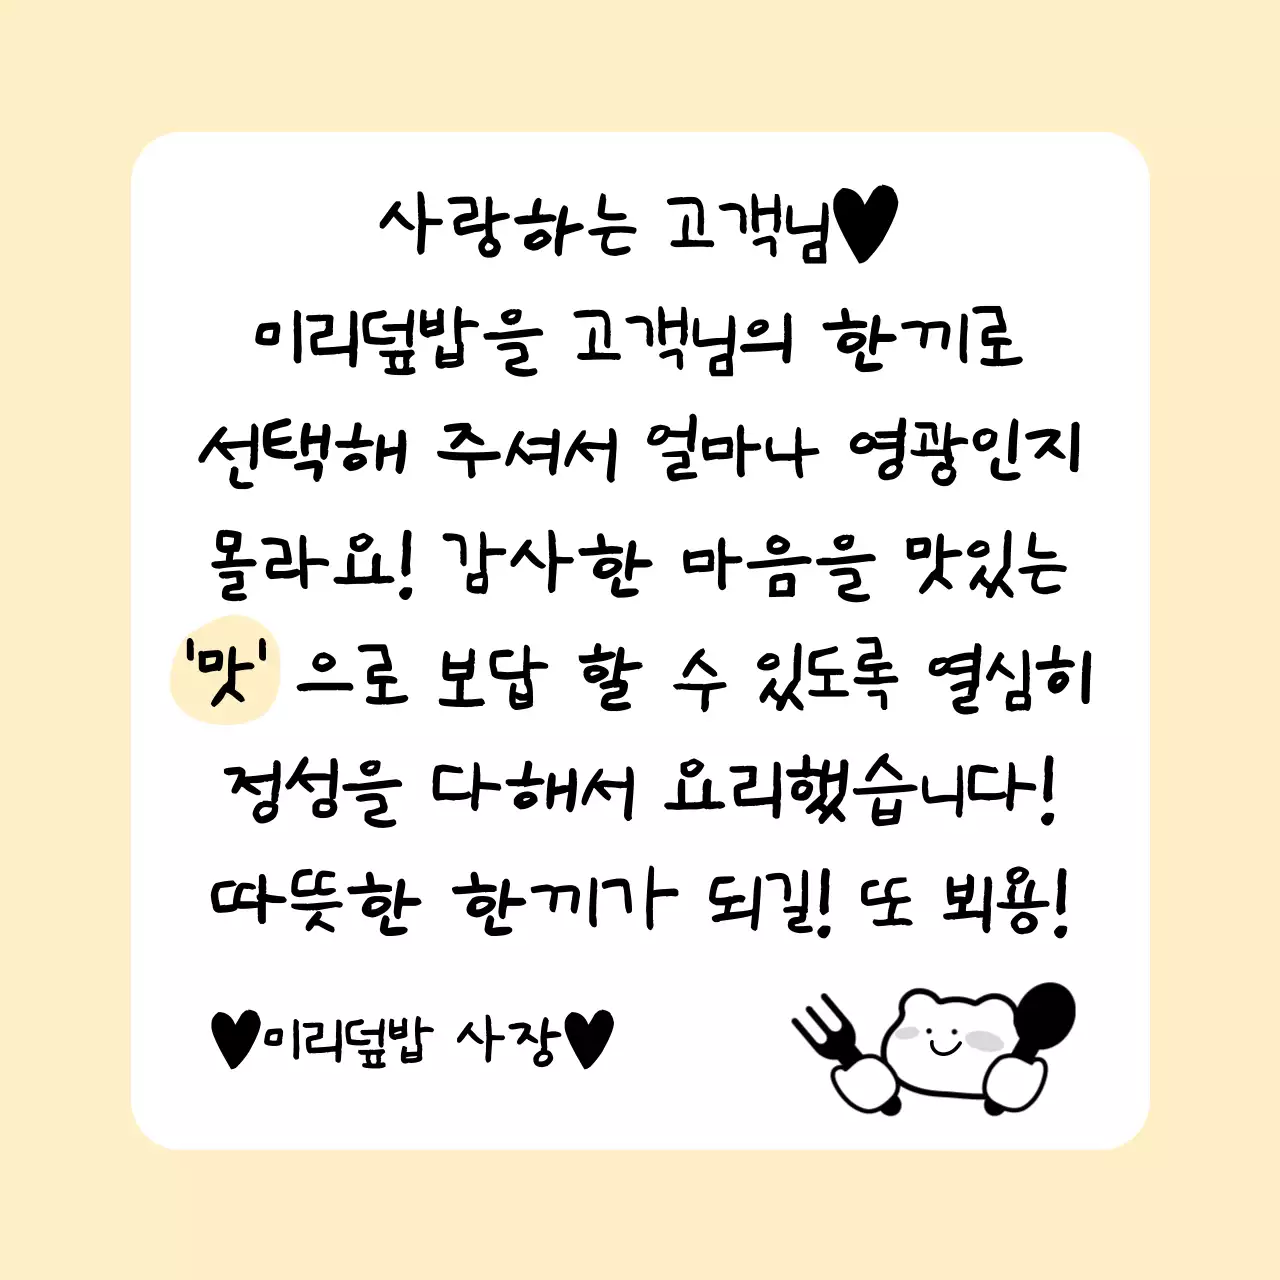 사랑하는 고객님♥
미리덮밥을 고객님의 한끼로
선택해 주셔서 얼마나 영광인지
몰라요! 감사한 마음을 맛있는
'맛' 으로 보답 할 수 있도록 열심히
정성을 다해서 요리했습니다!
따뜻한 한끼가 되길! 또 뵈용!
♥미리덮밥 사장♥